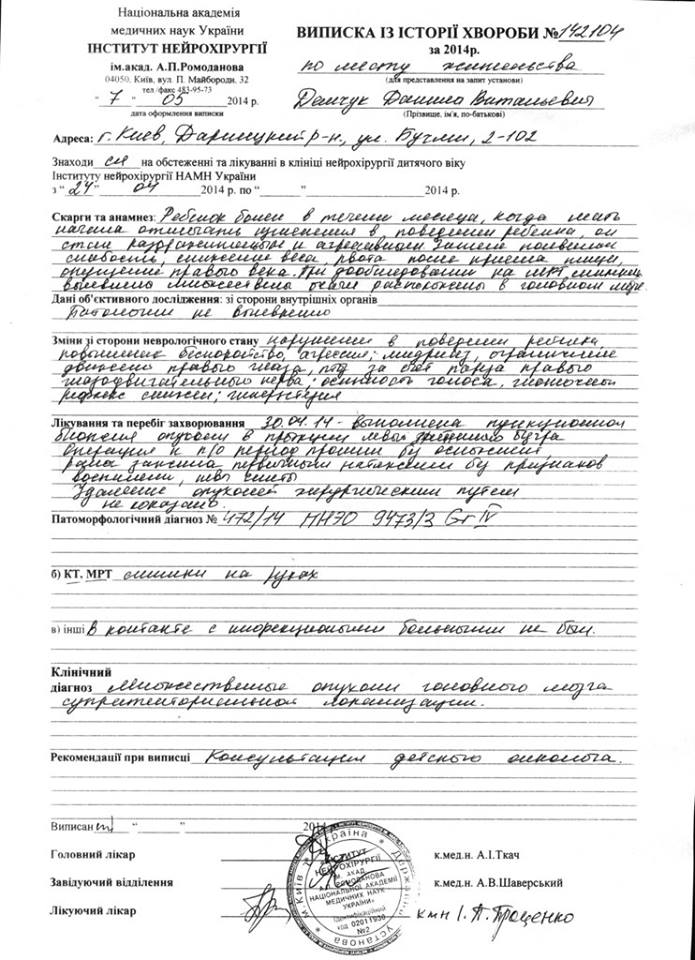 Національна академія
медичних наук України
ІНСТИТУТ НЕЙРОХІРУРГІЇ
ім.акад. А.П.Ромоданова
04050, Київ, вул. П. Майбороди, 32
тел/факс 483-95-73
"7" 05 2014 р.
дата оформлення виписки
ВИПИСКА ІЗ ІСТОРІЇ ХВОРОБИ №142104
за 2014р.
по месту жительства
(для представлення на запит установи)
Демчук Данила Витальевич
(Прізвище, ім'я, по-батькові)
Адреса: г. Киев, Дарницкий р-н, ул. Бучмы, 2-102
Знаходи ся на обстеженні та лікуванні в клініці нейрохірургії дитячого віку
Інституту нейрохірургії НАМН України
з "24" 04 2014 р. по " " 2014 р.
Скарги та анамнез: Ребенок болен в течении месяца, когда мать
начала отмечать изменения в поведении ребенка, он
стал раздражительным и агрессивным. Затем появилась
слабость, снижение веса, рвота после приема пищи,
опущение правого века. При дообследовании на МРТ
выявлены множественные очаги расположены в головном мозге.
Дані об'єктивного дослідження: зі сторони внутрішніх органів
Патологии не выявлено
Зміни зі сторони неврологічного стану нарушения в поведении ребенка,
повышенное беспокойство, агрессия; мидриаз, ограничение
движений правого глаза, птоз за счет пареза правого
глазодвигательного нерва; осиплость голоса, глоточный
рефлекс снижен;
Лікування та перебіг захворювання 30.04.14 - выполнена пункционная
биопсия опухоли в проекции левого зрительного бугра
Операция и п/о период прошли без осложнений
рана зажила первичным натяжением без признаков
воспаления, швы сняты
Удаление опухолей хирургическим путем
не показано.
Патоморфологічний діагноз № 472/14 ПНЭО 9473/3 Gr IV
б) КТ, МРТ снимки на руках
в) інші В контакте с инфекционными больными не был.
Клінічний
діагноз Множественные опухоли головного мозга
супратенториальной локализации.
Рекомендації при виписці Консультация детского онколога.
Виписан " " 2014
Головний лікар к.мед.н. А.І.Ткач
Завідуючий відділення к.мед.н. А.В.Шаверський
Лікуючий лікар кмн І. П. Проценко
Україна * Державна установа * м. Київ
ІНСТИТУТ
НЕЙРОХІРУРГІЇ
ІМ. АКАД.
А.П. РОМОДАНОВА
НАЦІОНАЛЬНОЇ АКАДЕМІЇ
МЕДИЧНИХ НАУК
УКРАЇНИ
Ідентифікаційний
код 02011930
№2